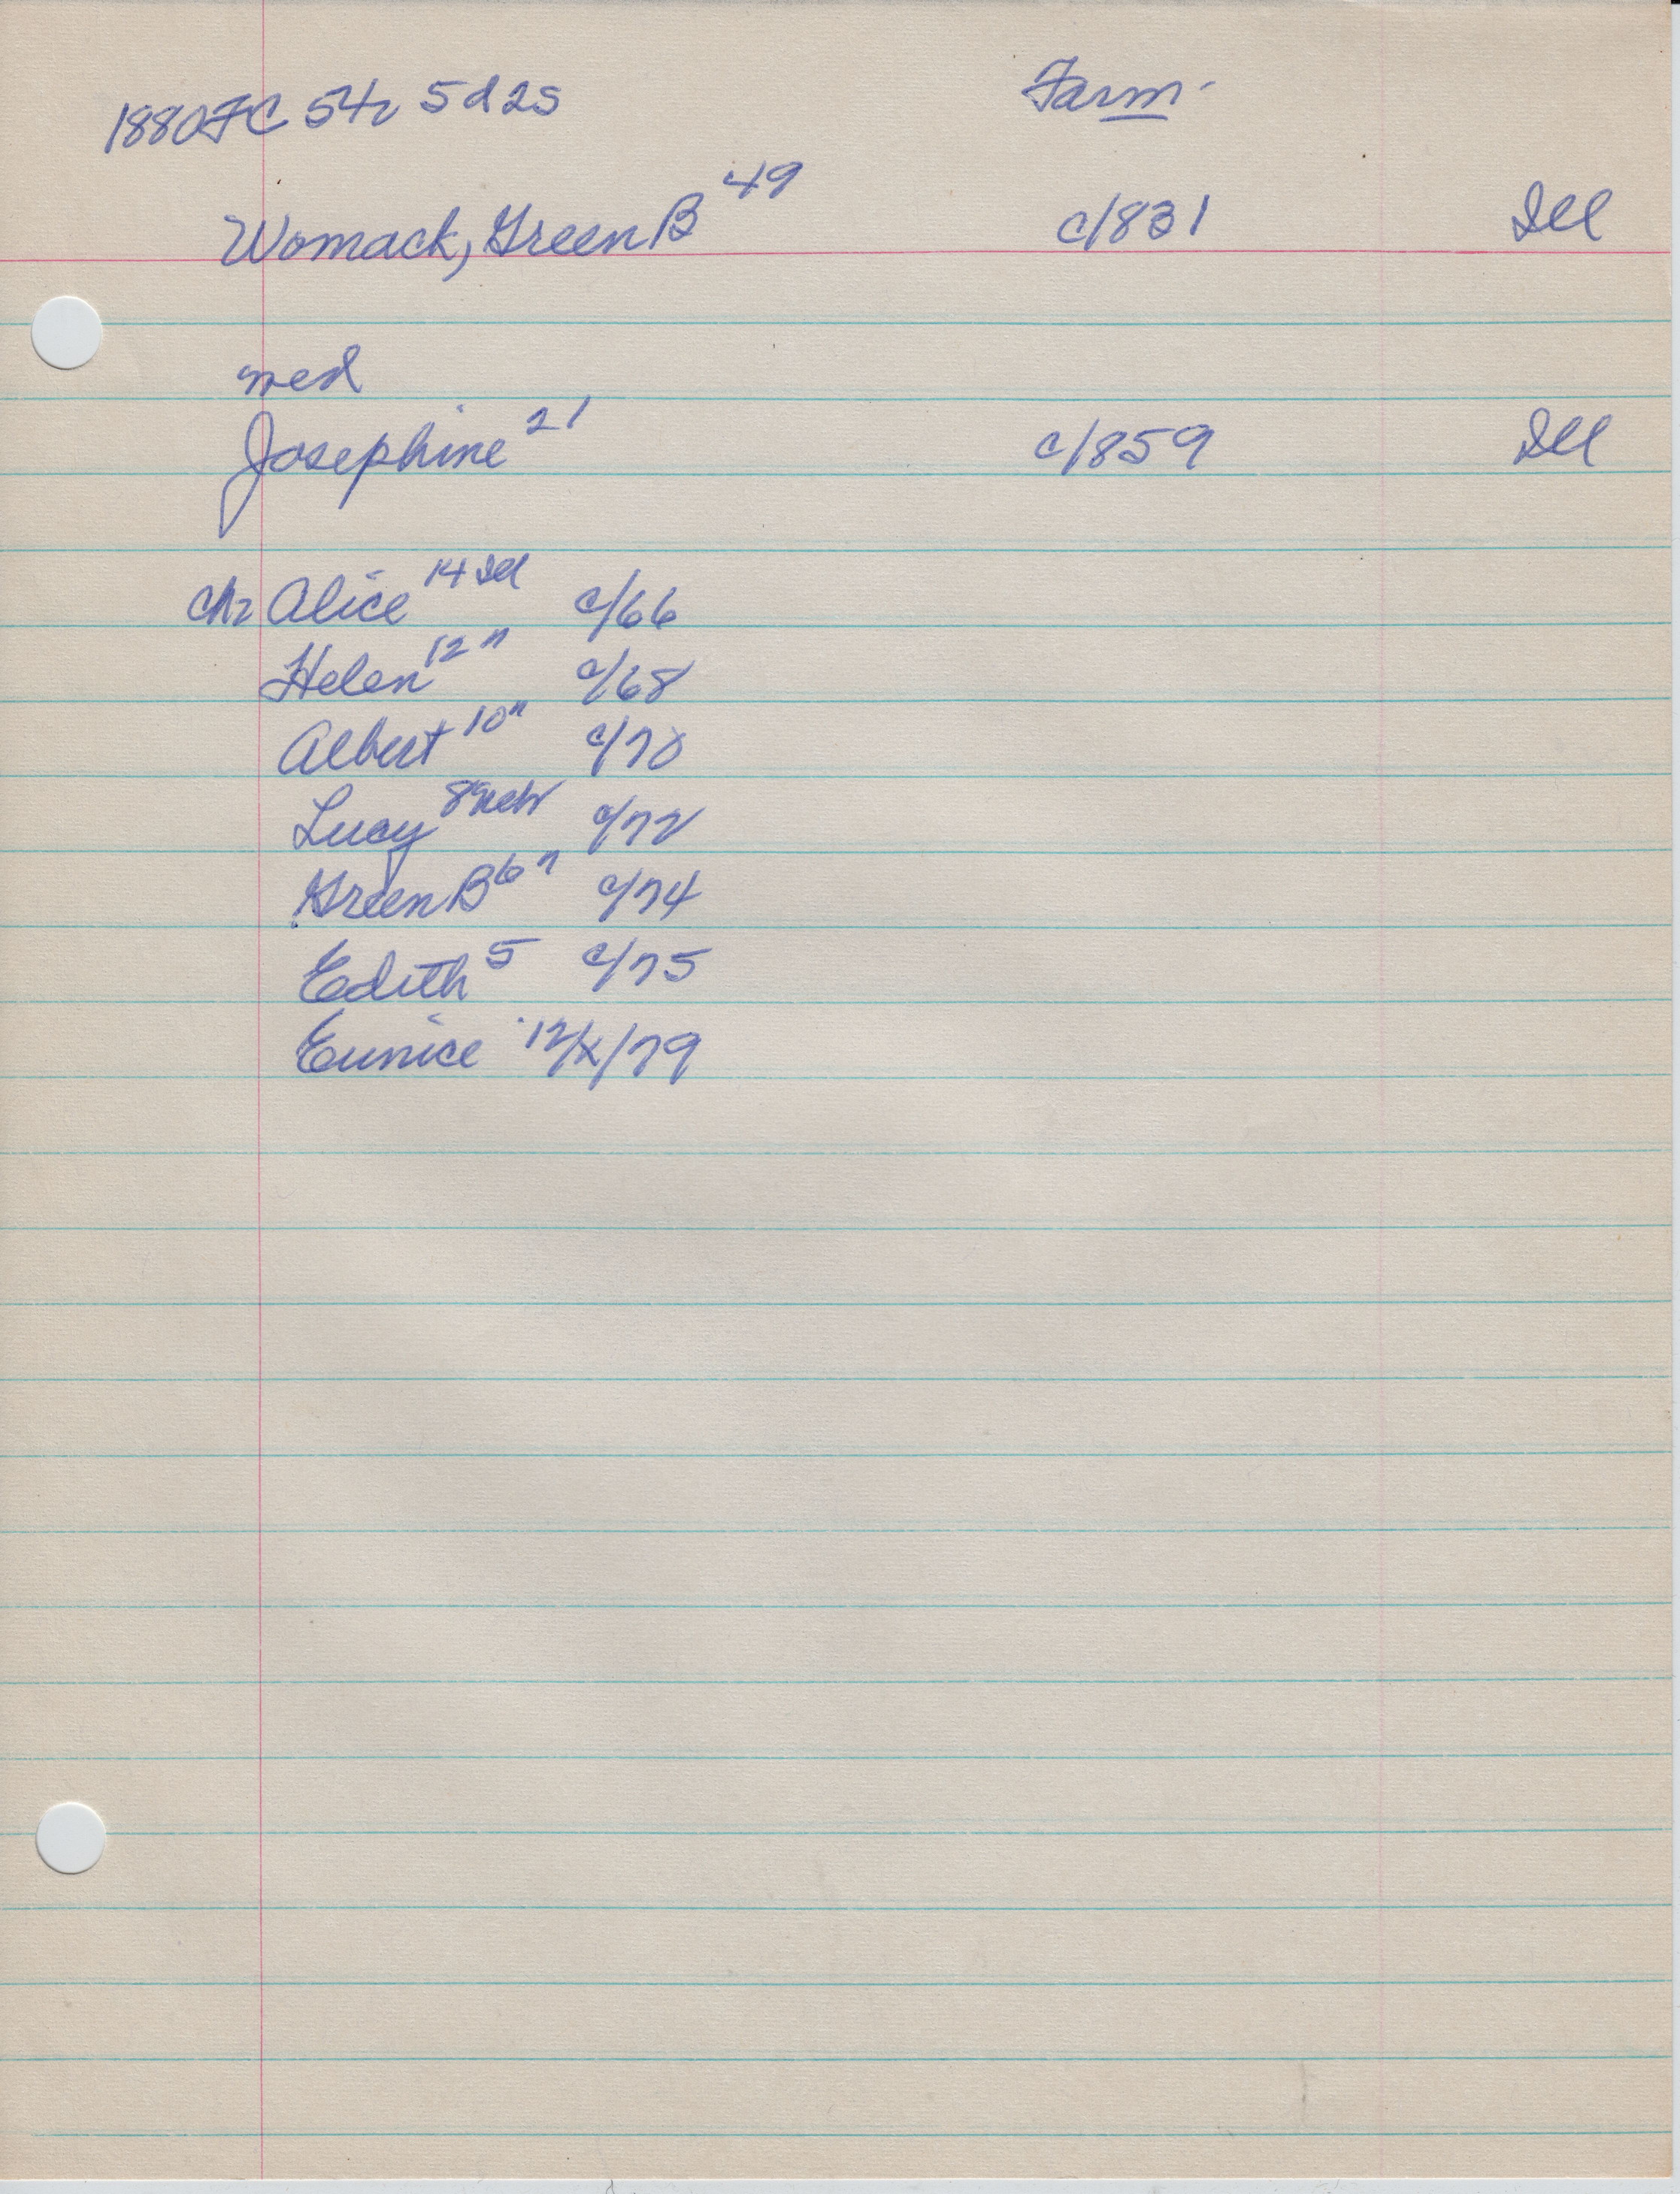 1880FC 54r 5d2s Farm
Womack, Green B 49 c/831 Ill
med
Josephine 21 c/859 Ill
chr Alice 14 Ill c/66
Helen 12 " c/68
Albert 10 " c/70
Lucy 8 Neb c/72
Green B 6 " c/74
Edith 5 c/75
Eunice 12/x/79